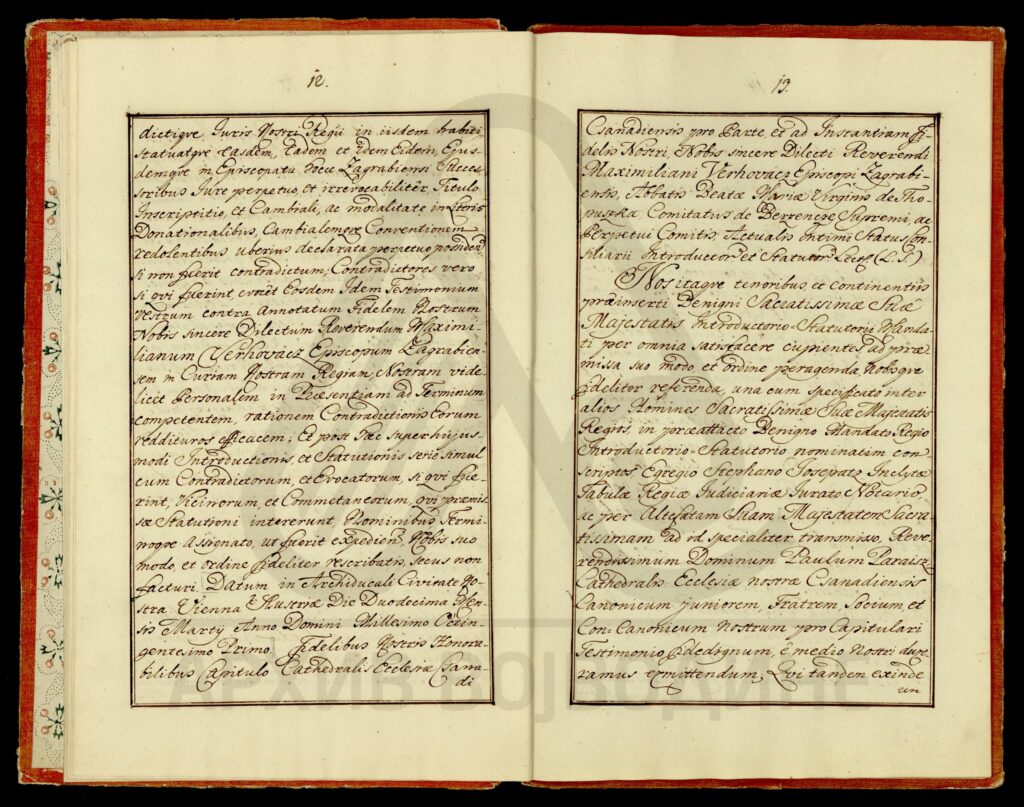 12.
dictiqve Juris Nostri Regii in iisdem habiti,
statuatqve Easdem, Eadem et idem Eidem, Ejus-
demqve in Episcopatu hocce Zagrabiensi Succes-
soribus Jure perpetuo, et irrevocabiliter, Titulo
Inscriptitio, et Cambiali, ac modalitate in Literis
Donationalibus, Cambialemqve Conventionem
redolentibus uberius declarata perpetuo possidend
si non fuerit contradictum; Contradictores vero
si qvi fuerint, evocet Eosdem Idem Testimonium
vestrum contra Annotatum Fidelem Nostrum
Nobis sincere Dilectum Reverendum Maximi-
lianum Verhovacz Episcopum Zagrabien-
sem in Curiam Nostram Regiam, Nostram vide
licet Personalem in Præsentiam ad Terminum
competentem, rationem Contradictionis Eorum
reddituros efficacem; Et post hæc super hujus-
modi Introductionis, et Statutionis serie simul
cum Contradictorum, et Evocatorum, si qvi fue-
rint, Vicinorum, et Commetaneorum, qvi præmis-
sæ Statutioni intererunt, Nominibus Termi-
noqve Assignato, ut fuerit expediens Nobis suo
modo, et ordine fideliter rescribatis, secus non
facturi. Datum in Archiducali Civitate No-
stra Vienna Austriæ Die Duodecima Men-
sis Marty Anno Domini Millesimo Octin-
gentesimo Primo. Fidelibus Nostris Honora-
bilibus Capitulo Cathedralis Ecclesiæ Csana-
di
13.
Csanadiensis pro Parte, et ad Instantiam Fi-
delis Nostri, Nobis sincere Dilecti Reverendi
Maximiliani Verhovacz Episcopi Zagrabi-
ensis, Abbatis Beatæ Mariæ Virginis de Tho-
puszka, Comitatus de Berrenere Supremi ac
Perpetui Comitis, Actualis Intimi Status Con-
siliarii Introductor et Statutor (L. S.)
Nos itaqve tenoribus, et continentiis
præinserti Benigni Sacratissimæ Suæ
Majestatis Introductorio-Statutorii Manda-
ti per omnia satisfacere cupientes, ad præ-
missa suo modo et ordine peragenda Nobisqve
fideliter referenda, una cum specificato inter
alios Homines Sacratissimæ Suæ Majestatis
Regios in præattacto Benigno Mandato Regio
Introductorio-Statutorio nominatim con
scriptos Egregio Stephano Josepatz Inclytæ
Tabulæ Regiæ Judiciariæ Jurato Notario,
ac per Altefatam Suam Majestatem Sacra-
tissimam ad id specialiter transmisso, Reve-
rendissimum Dominum Paulum Paraisz
Cathedralis Ecclesiæ nostræ Csanadiensis
Canonicum Juniorem, Fratrem, Socium, et
Con-Canonicum nostrum pro Capitulari
Testimonio fidedignum, è medio Nostri duxe-
ramus exmittendum; Qvi tandem exinde
un
АРХИВ ВОЈВОДИНЕ